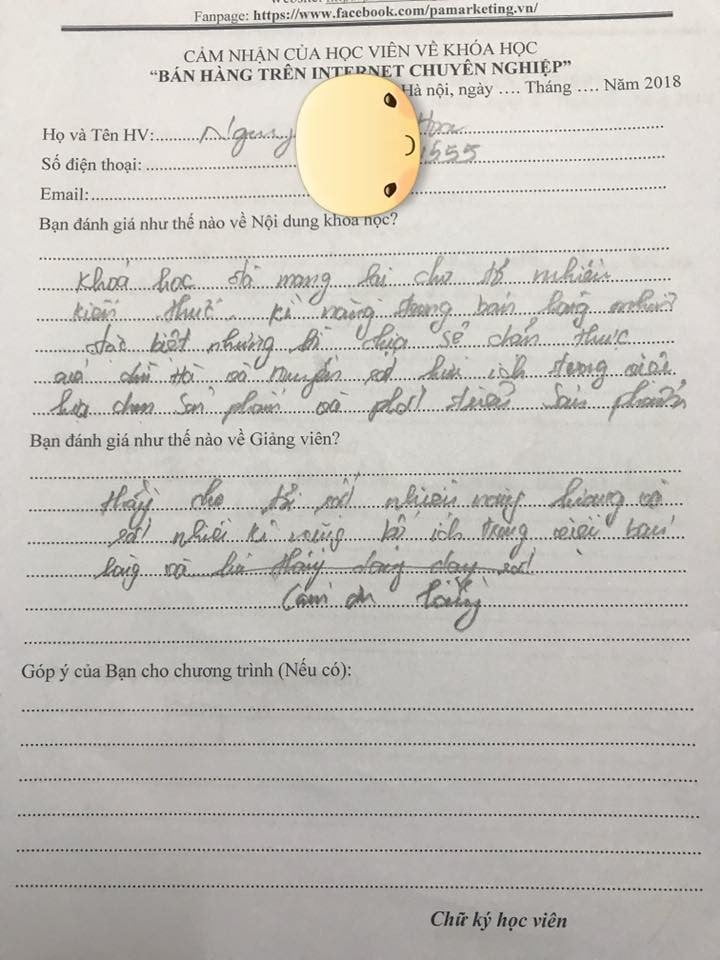 Fanpage: https://www.facebook.com/pamarketing.vn/
CẢM NHẬN CỦA HỌC VIÊN VỀ KHÓA HỌC
“BÁN HÀNG TRÊN INTERNET CHUYÊN NGHIỆP”
Hà nội, ngày .... Tháng .... Năm 2018
Họ và Tên HV: Nguy Hoa
Số điện thoại: 1555
Email:
Bạn đánh giá như thế nào về Nội dung khóa học?
Khoá học đã mang lại cho tớ nhiều
kiến thức kĩ năng trong bán hàng
đặc biệt những chia sẻ chân thực
và rất hữu ích trong việc
lựa chọn sản phẩm và sản phẩm
Bạn đánh giá như thế nào về Giảng viên?
Thầy cho tớ rất nhiều năng lượng và
rất nhiều kĩ năng bổ ích trong việc bán
hàng và thầy dạy rất
Cảm ơn thầy
Góp ý của Bạn cho chương trình (Nếu có):
Chữ ký học viên